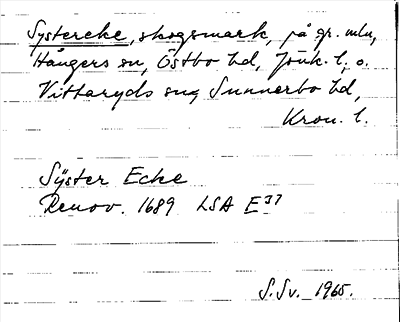 Systereke, skogsmark, på gr. mln,
Hångers sn, Östbo hd, Jönk. l. o.
Vittaryds sn, Sunnerbo hd,
Kron. l.
Sÿster Ecke
Renov. 1689 LSA E37
S. Sv. 1965.